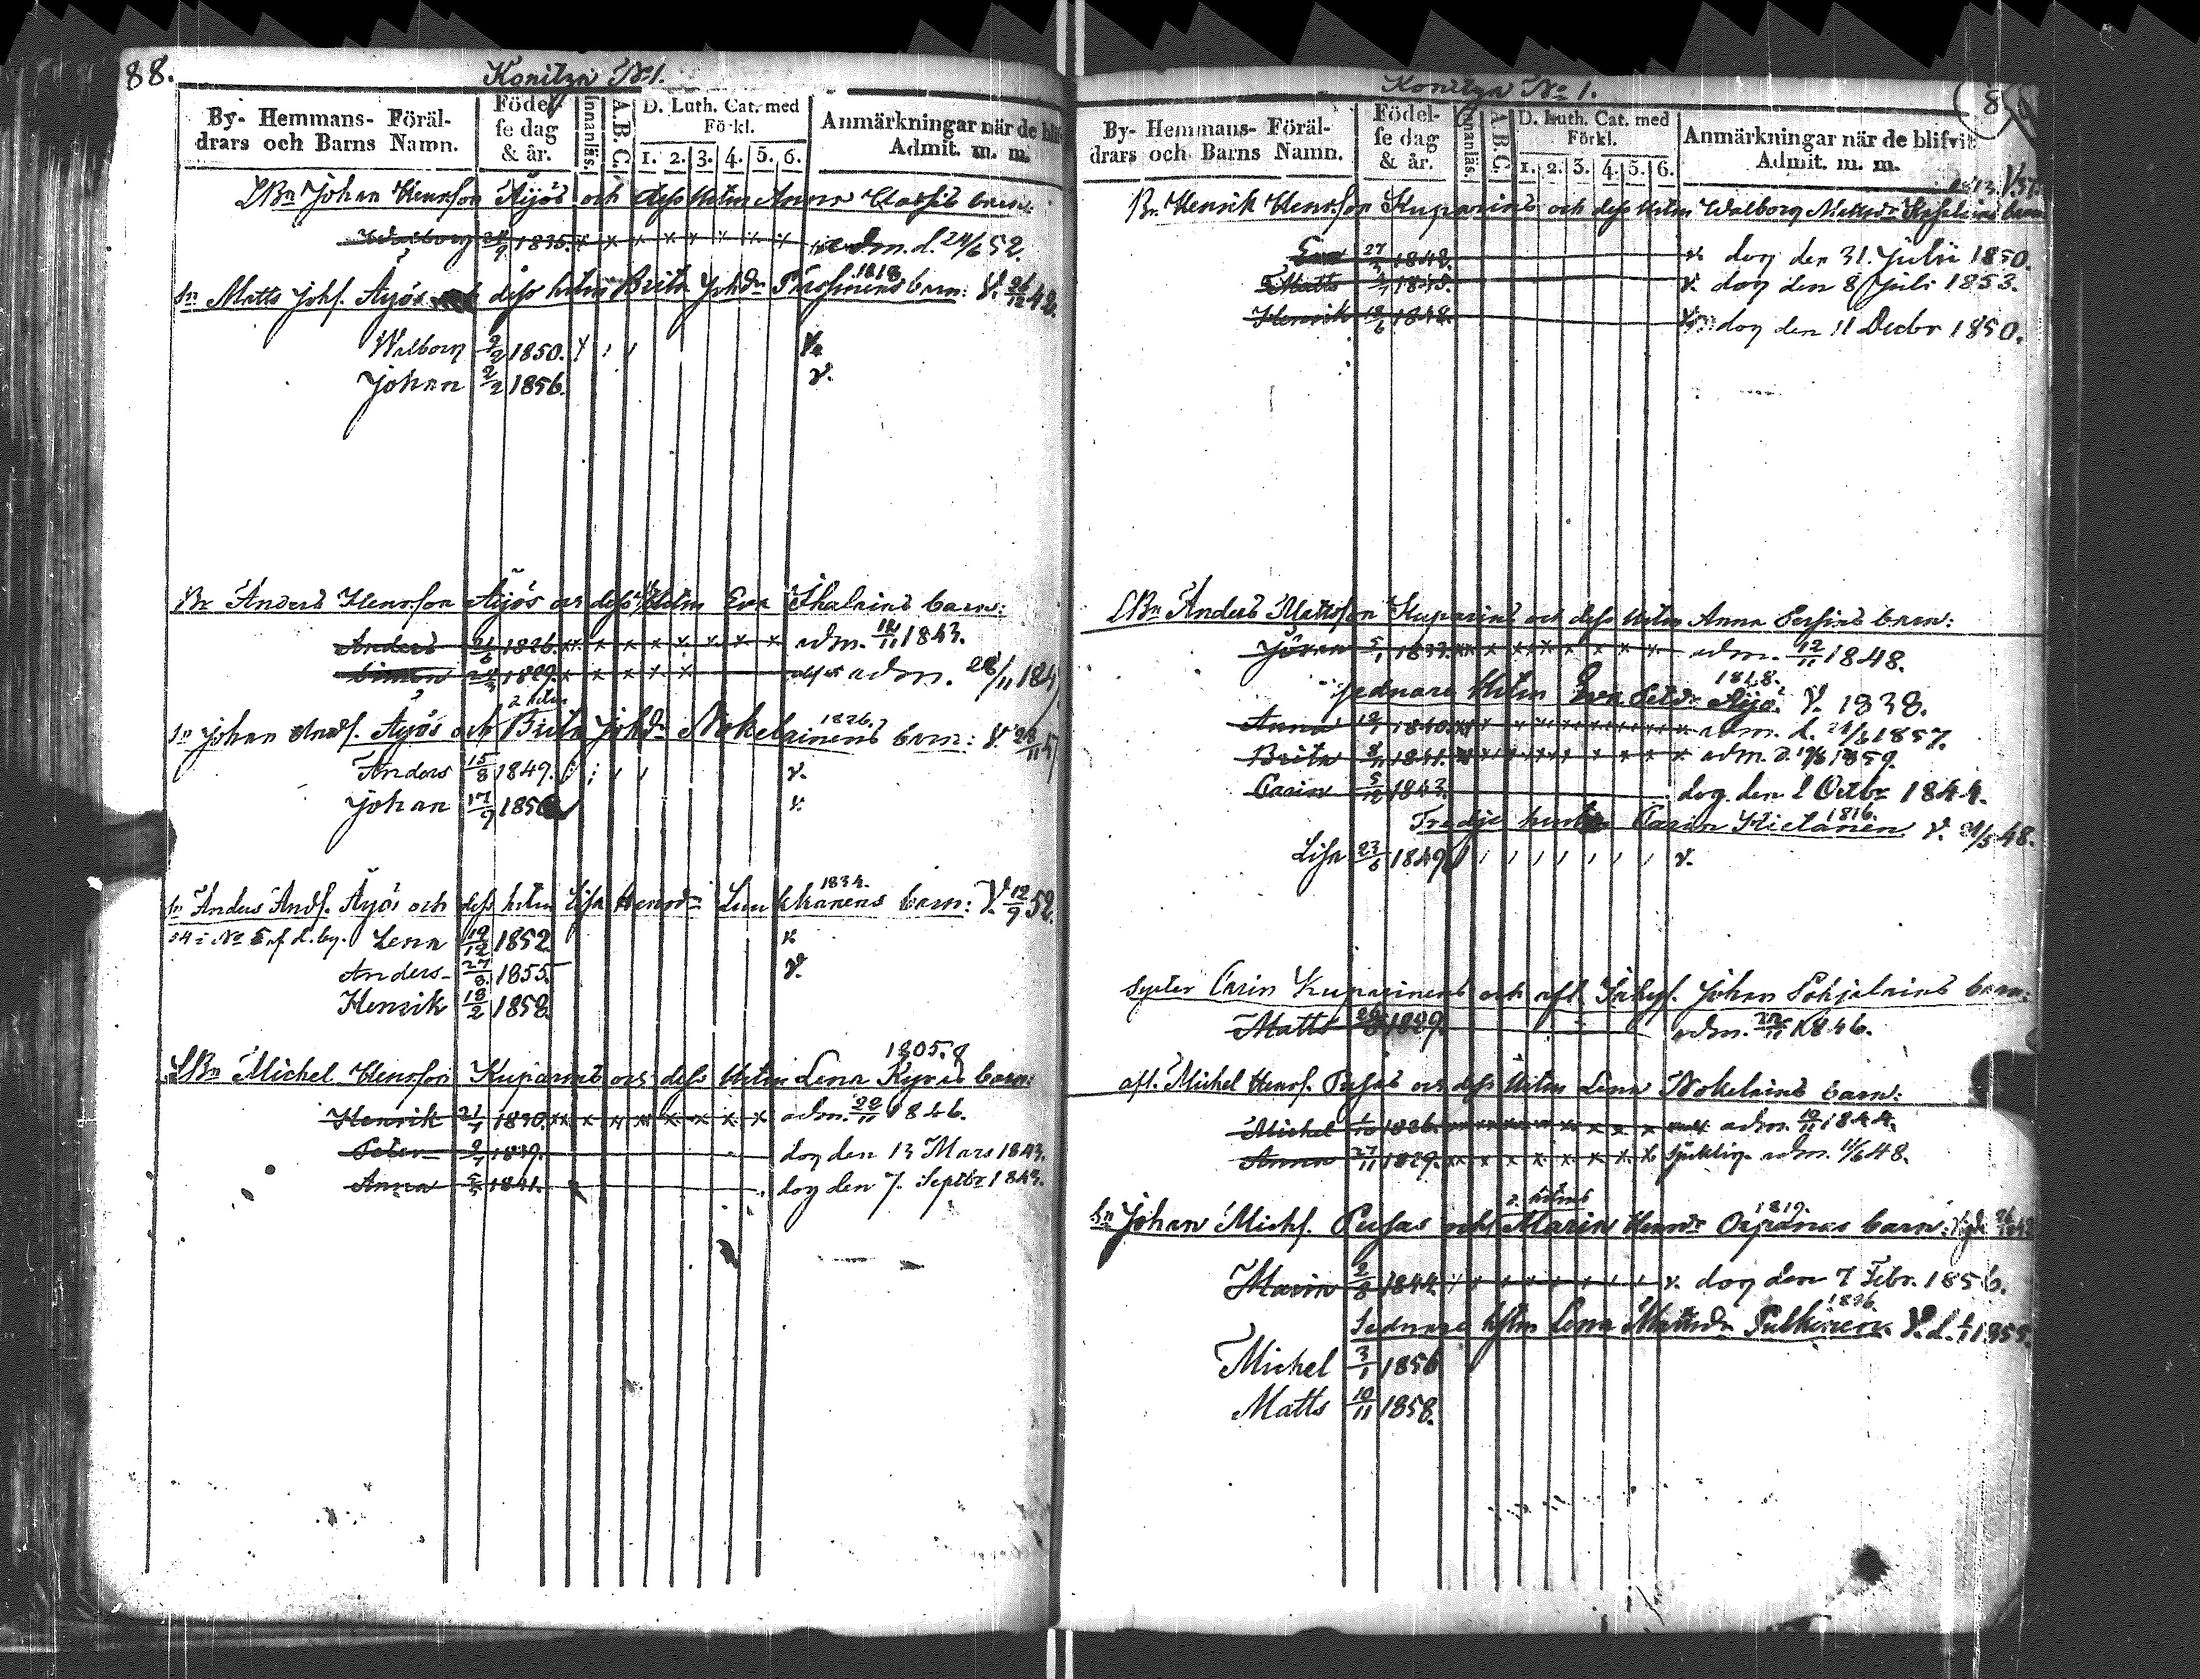 88.
Konitza No 1.
By- Hemmans- Föräl-
drars och Barns Namn.
Födel-
se dag
& år.
Innanläs.
A.B.C.
D. Luth. Cat. med
Förkl.
1. 2. 3. 4. 5. 6.
Anmärkningar när de blif
Admit. m. m.
LBn Johan Henrsson Äyjös och dess Hstru Anna barn:
Walborg 1835. x x x x x x x x adm. d. 24/6 52.
1818
Sn Matts Johs. Äyös dess hstru Brita Johdr barn: V. 26/12 48.
Walborg 2/2 1850.
Johan 2/2 1856. v.
Br Anders Henrsson Äyös och dess Hstru Eva Ihalains barn:
Anders 21/6 1826. x x x x x x x adm. 12/11 1843.
Simon 1829. x x x x x adm. 28/11 184
2 hstru
1826.
Sn Johan Andf. Äyös och Brita Johdr Nokelainens barn: V.
Anders 15/8 1849. v.
Johan 17/9 185 v.
1834.
Sn Anders Andf. Äyös och dess hstru Lisa Henrdr Luukkanens barn: V. 12/9 52.
No 5 af d. by. Lena 19/12 1852
Anders 27/8 1855 v.
Henrik 18/2 1858.
1805.
LBn Michel Henrsson Kuparins och dess Hstru Lena Kyrös barn:
Henrik 21/1 1830. x x x x x x x x adm. 22/11 1846.
Peter 1839. dog den 13 Mars 1843.
Anna 1841. dog den 7. Septbr. 1843.
Konitza No 1.
8
By- Hemmans- Föräl-
drars och Barns Namn.
Födel-
se dag
& år.
Innanläs.
A.B.C.
D. Luth. Cat. med
Förkl.
1. 2. 3. 4. 5. 6.
Anmärkningar när de blifvit
Admit. m. m.
Br. Henrik Henrsson Kuparins och dess Hstru Walborg Mattsdr barn
Eva 1842. dog den 31. Julii 1850.
Matts 1845. v. dog den 8 Juli 1853.
Henrik 18/6 1848. dog den 11 Decbr 1850.
LBn Anders Mattsson Kuparins och dess Hstru Anna barn:
Jöran 5/1 1833. x x x x x x x x adm. 12/11 1848.
1818.
sednare Hstru Eva Petdr Äyjö. V. 1838.
Anna 1840. adm. d. 21/6 1857.
Brita 1841. adm. d. 1859.
Carin 5/12 1843. dog den 2 Octbr 1844.
1816.
Tredje hustru Carin Hietanen V. 48.
Lisa 23/6 1849. v.
Syster Carin Kuparinens och afl. Johan Pohjalains barn:
Matts 1829. adm. 22/11 1846.
afl. Michel Henrs. Pusas och dess Hstru Lena Nokelains barn:
Michel 1826. x x x x x x x x adm. 10/11 1844.
Anna 27/11 1829. x x x x x x x x sjuklig. adm. 48.
1819.
Sn Johan Michs. Pusas och Maria Henrdr barn:
Maria 2/8 1844. v. dog den 7 Febr. 1856.
1826.
Sednare hstru Lena Mattsdr Pulkinen. V. d. 1855.
Michel 3/1 1856
Matts 10/11 1858.